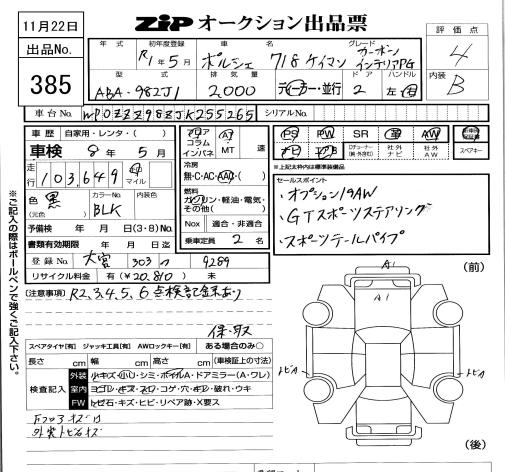 11月22日
ZIP オークション出品票
出品No.
385
評価点
4
内装
B
年式 初年度登録 車名 グレード
R1年5月 ポルシェ 718ケイマン カーボンインテリアPG
型式 排気量 ドア ハンドル
ABA-982J1 2,000 元・ディーカー・並行 2 左・右
車台No. WP0ZZZ98ZJK255265 シリアルNo.
車歴 自家用・レンタ・( )
車検 8年5月
走行 103,649 km マイル
色 黒 (元色) カラーNo. BLK 内装色
予備検 年 月 日(3・8)No.
書類有効期限 年 月 日迄
登録No. 大宮 303 9289
リサイクル料金 有(¥20,810) 未
フロア コラム インパネ AT MT 速
冷房 無・C・AC・AAC・( )
燃料 ガソリン・軽油・電気・その他( )
Nox 適合・非適合
乗車定員 2 名
PS PW SR 革 AW
ナビ エアB TVチューナー(純・外含む) 社外ナビ 社外AW
新車時保証書 スペアキー
※上記太枠内は標準装備品
セールスポイント
・オプション19AW
・GTスポーツステアリング
・スポーツテールパイプ
(注意事項) R2,3,4,5,6点検記録あり
保・取
スペアタイヤ[有] ジャッキ工具[有] AWロックキー[有] ある場合のみ○
長さ cm 幅 cm 高さ cm (車検証上の寸法)
検査記入 外装 小キズ・小U・シミ・ボイルA・ドアミラー(A・ワレ)
室内 ヨゴレ・キズ・スレ・コゲ・穴・キレ・破れ・ウキ
FW トビ石・キズ・ヒビ・リペア跡・X要ス
外装トビ石キズ
(前)
A1
A1
トビA
トビA
(後)
※ご記入の際はボールペンで強くご記入下さい。